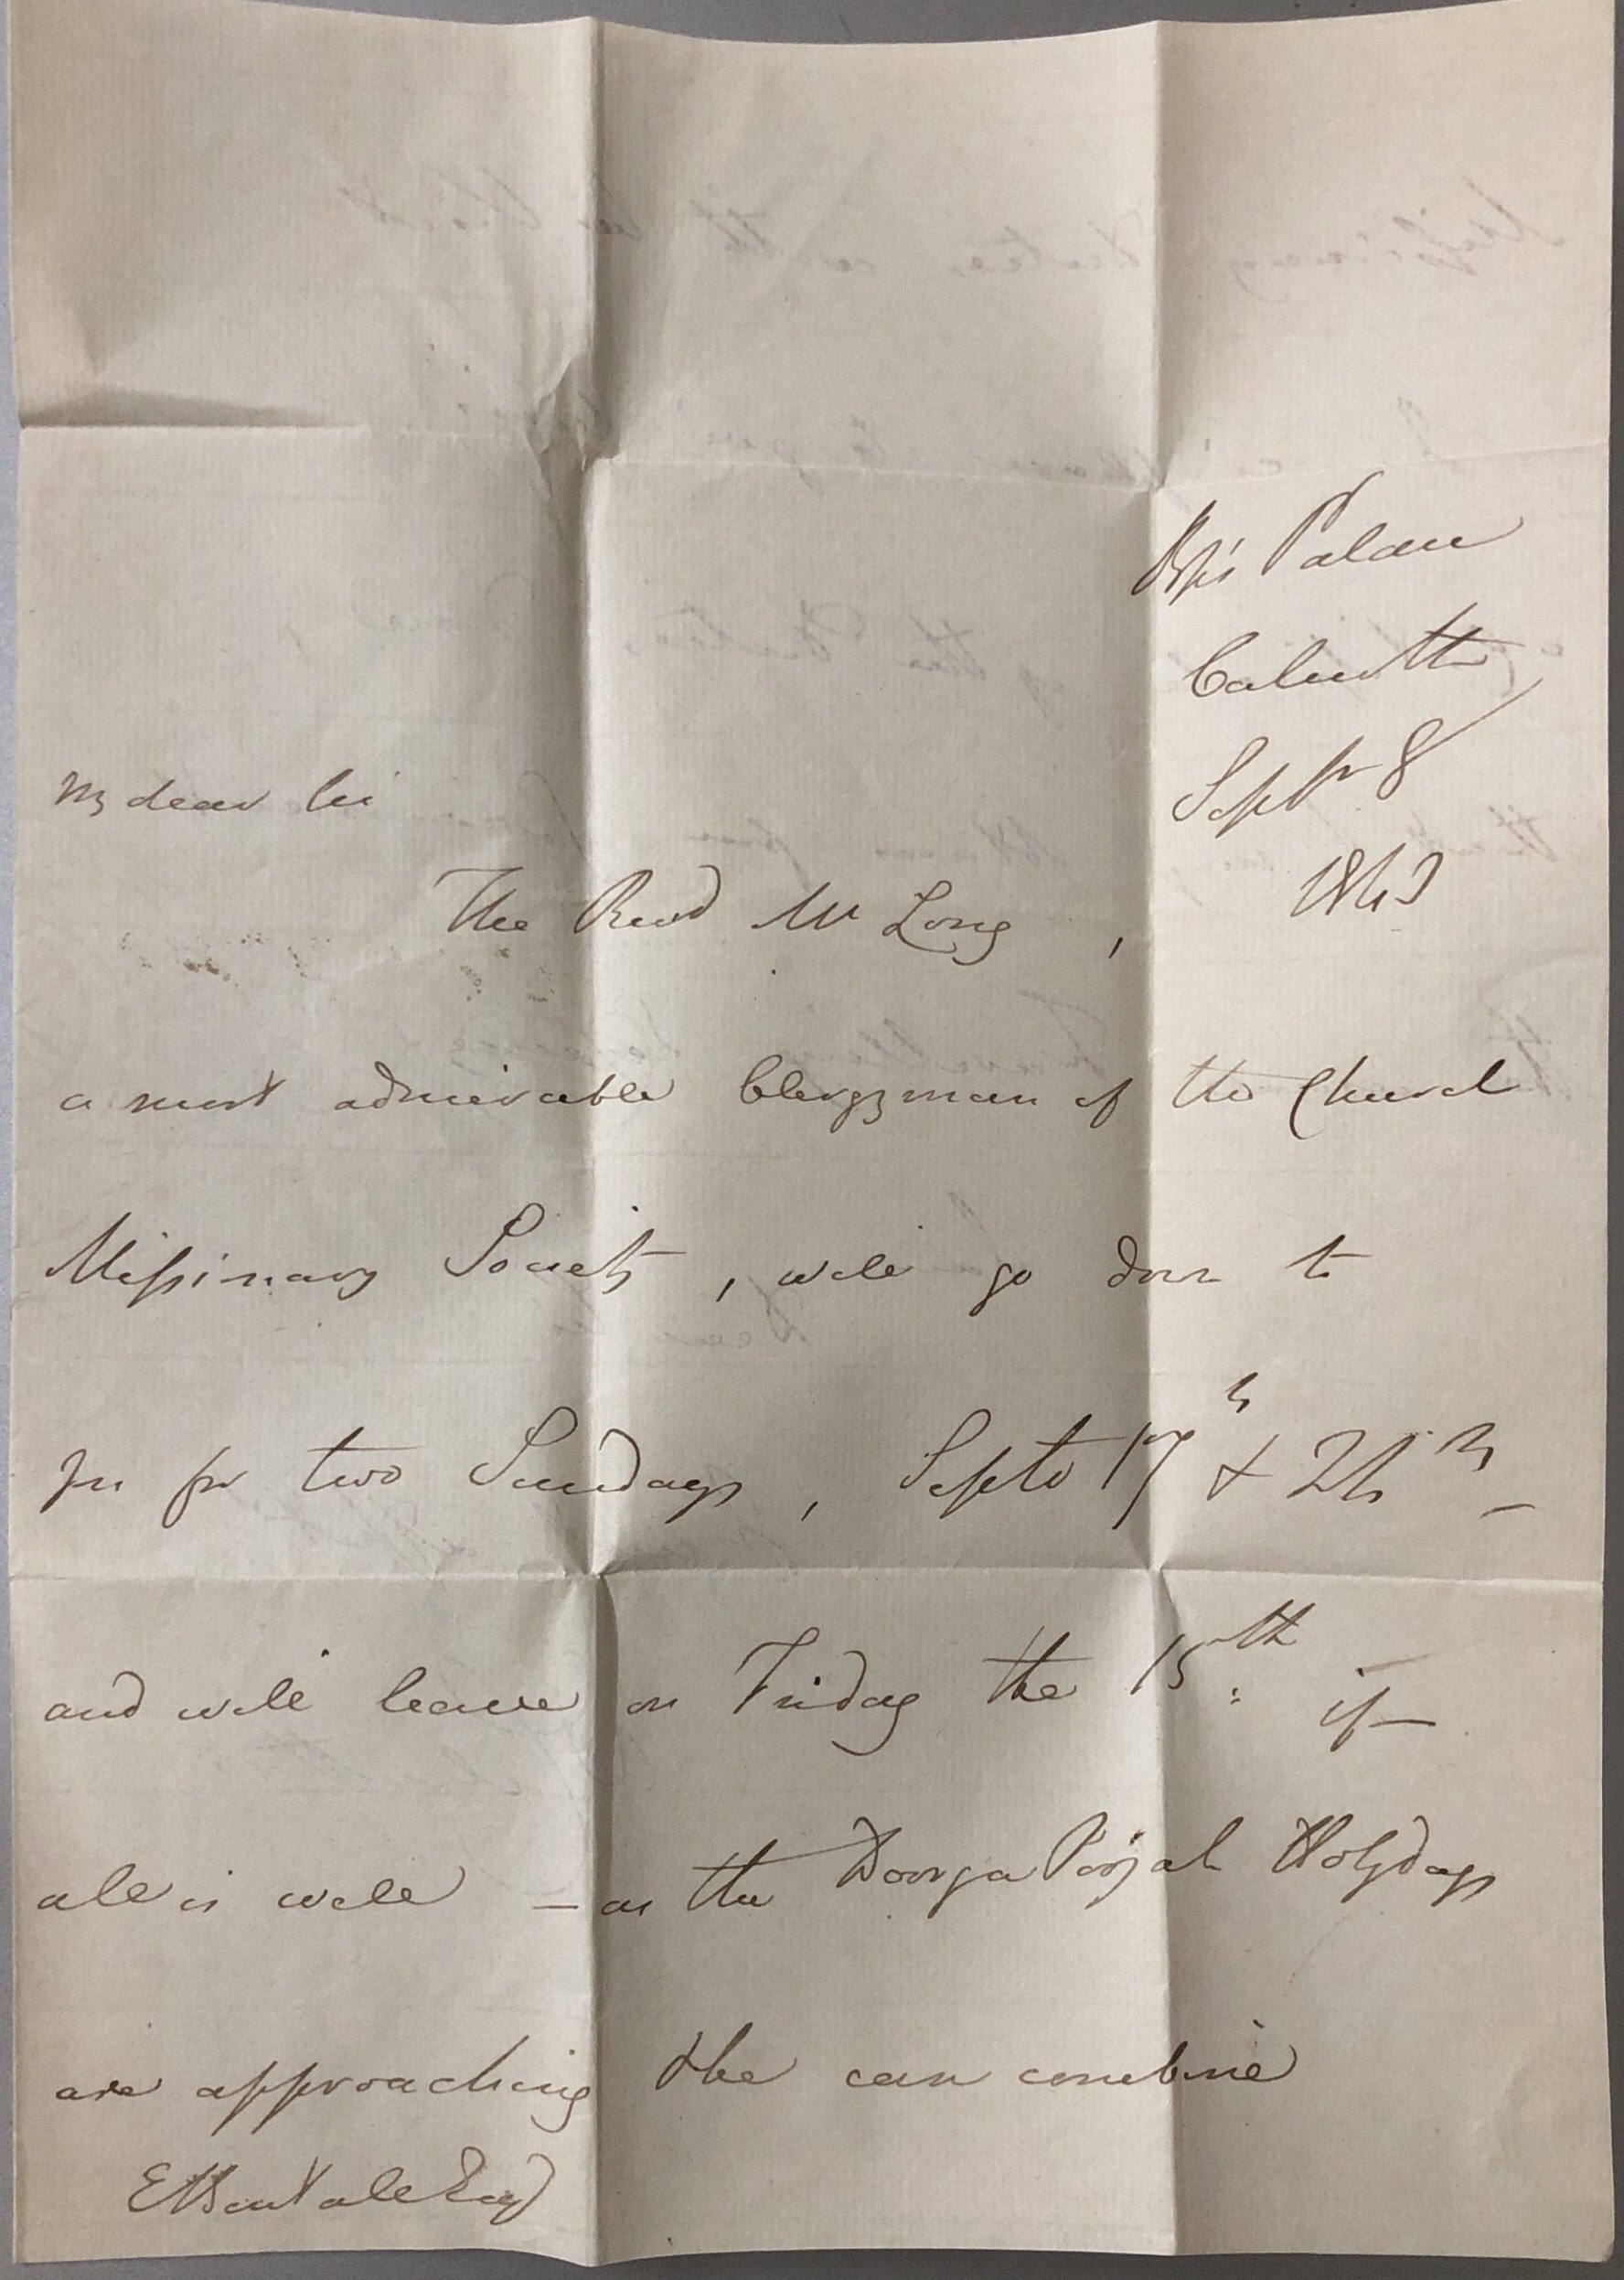 Bps Palace
Calcutta
Septr 8
1843
My dear Sir
The Revd Mr Long,
a most admirable Clergyman of the Church
Missionary Society, will go down to
you for two Sundays, Septr 17th & 24th —
and will leave on Friday the 15th if
all is well — as the Doorga Poojah Holydays
are approaching & he can combine
E Bentall Esq